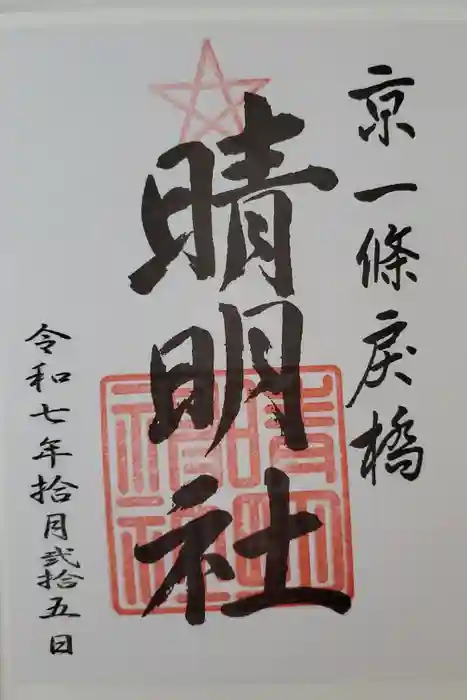 京一條戻橋
晴明社
晴明神社
令和七年拾月弐拾五日